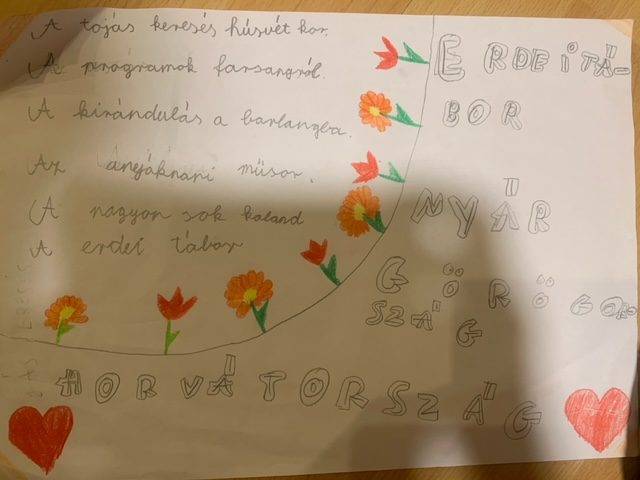 A tojás keresés húsvét kor.
A prógramok farsangról.
A kirándulás a barlangba.
Az ányjáknapi műsor.
A nagyon sok kaland
A erdei tábor
ERDEI TÁ-
BOR
NYÁR
GÖRÖGOR-
SZÁG
HORVÁTORSZÁG